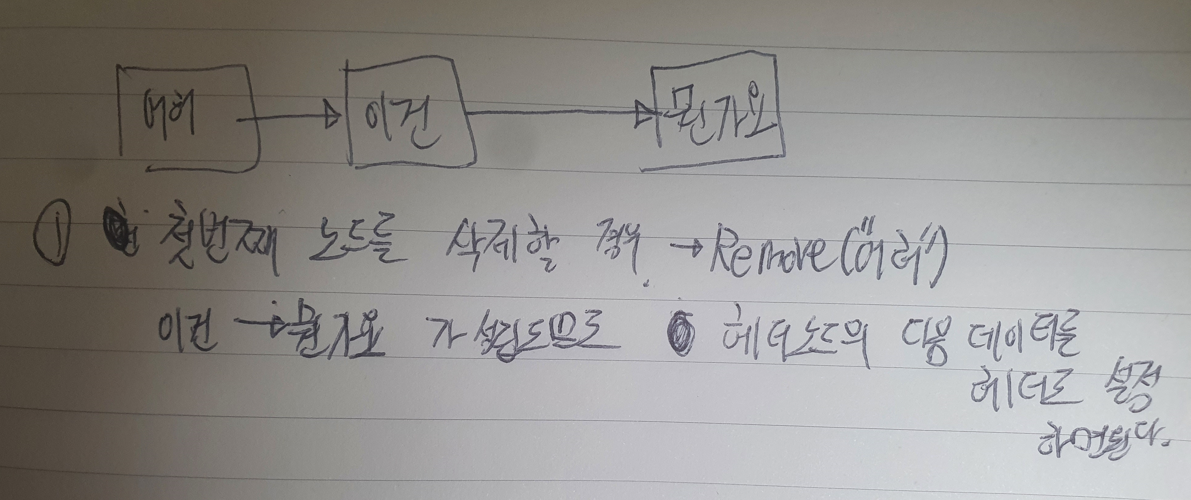 어허 이건 뭔가요
① 첫번째 노드를 삭제할 경우 → Remove("어허")
이건 → 뭔가요 가 성립되므로 헤더노드의 다음 데이터를
헤더로 설정
하면된다.